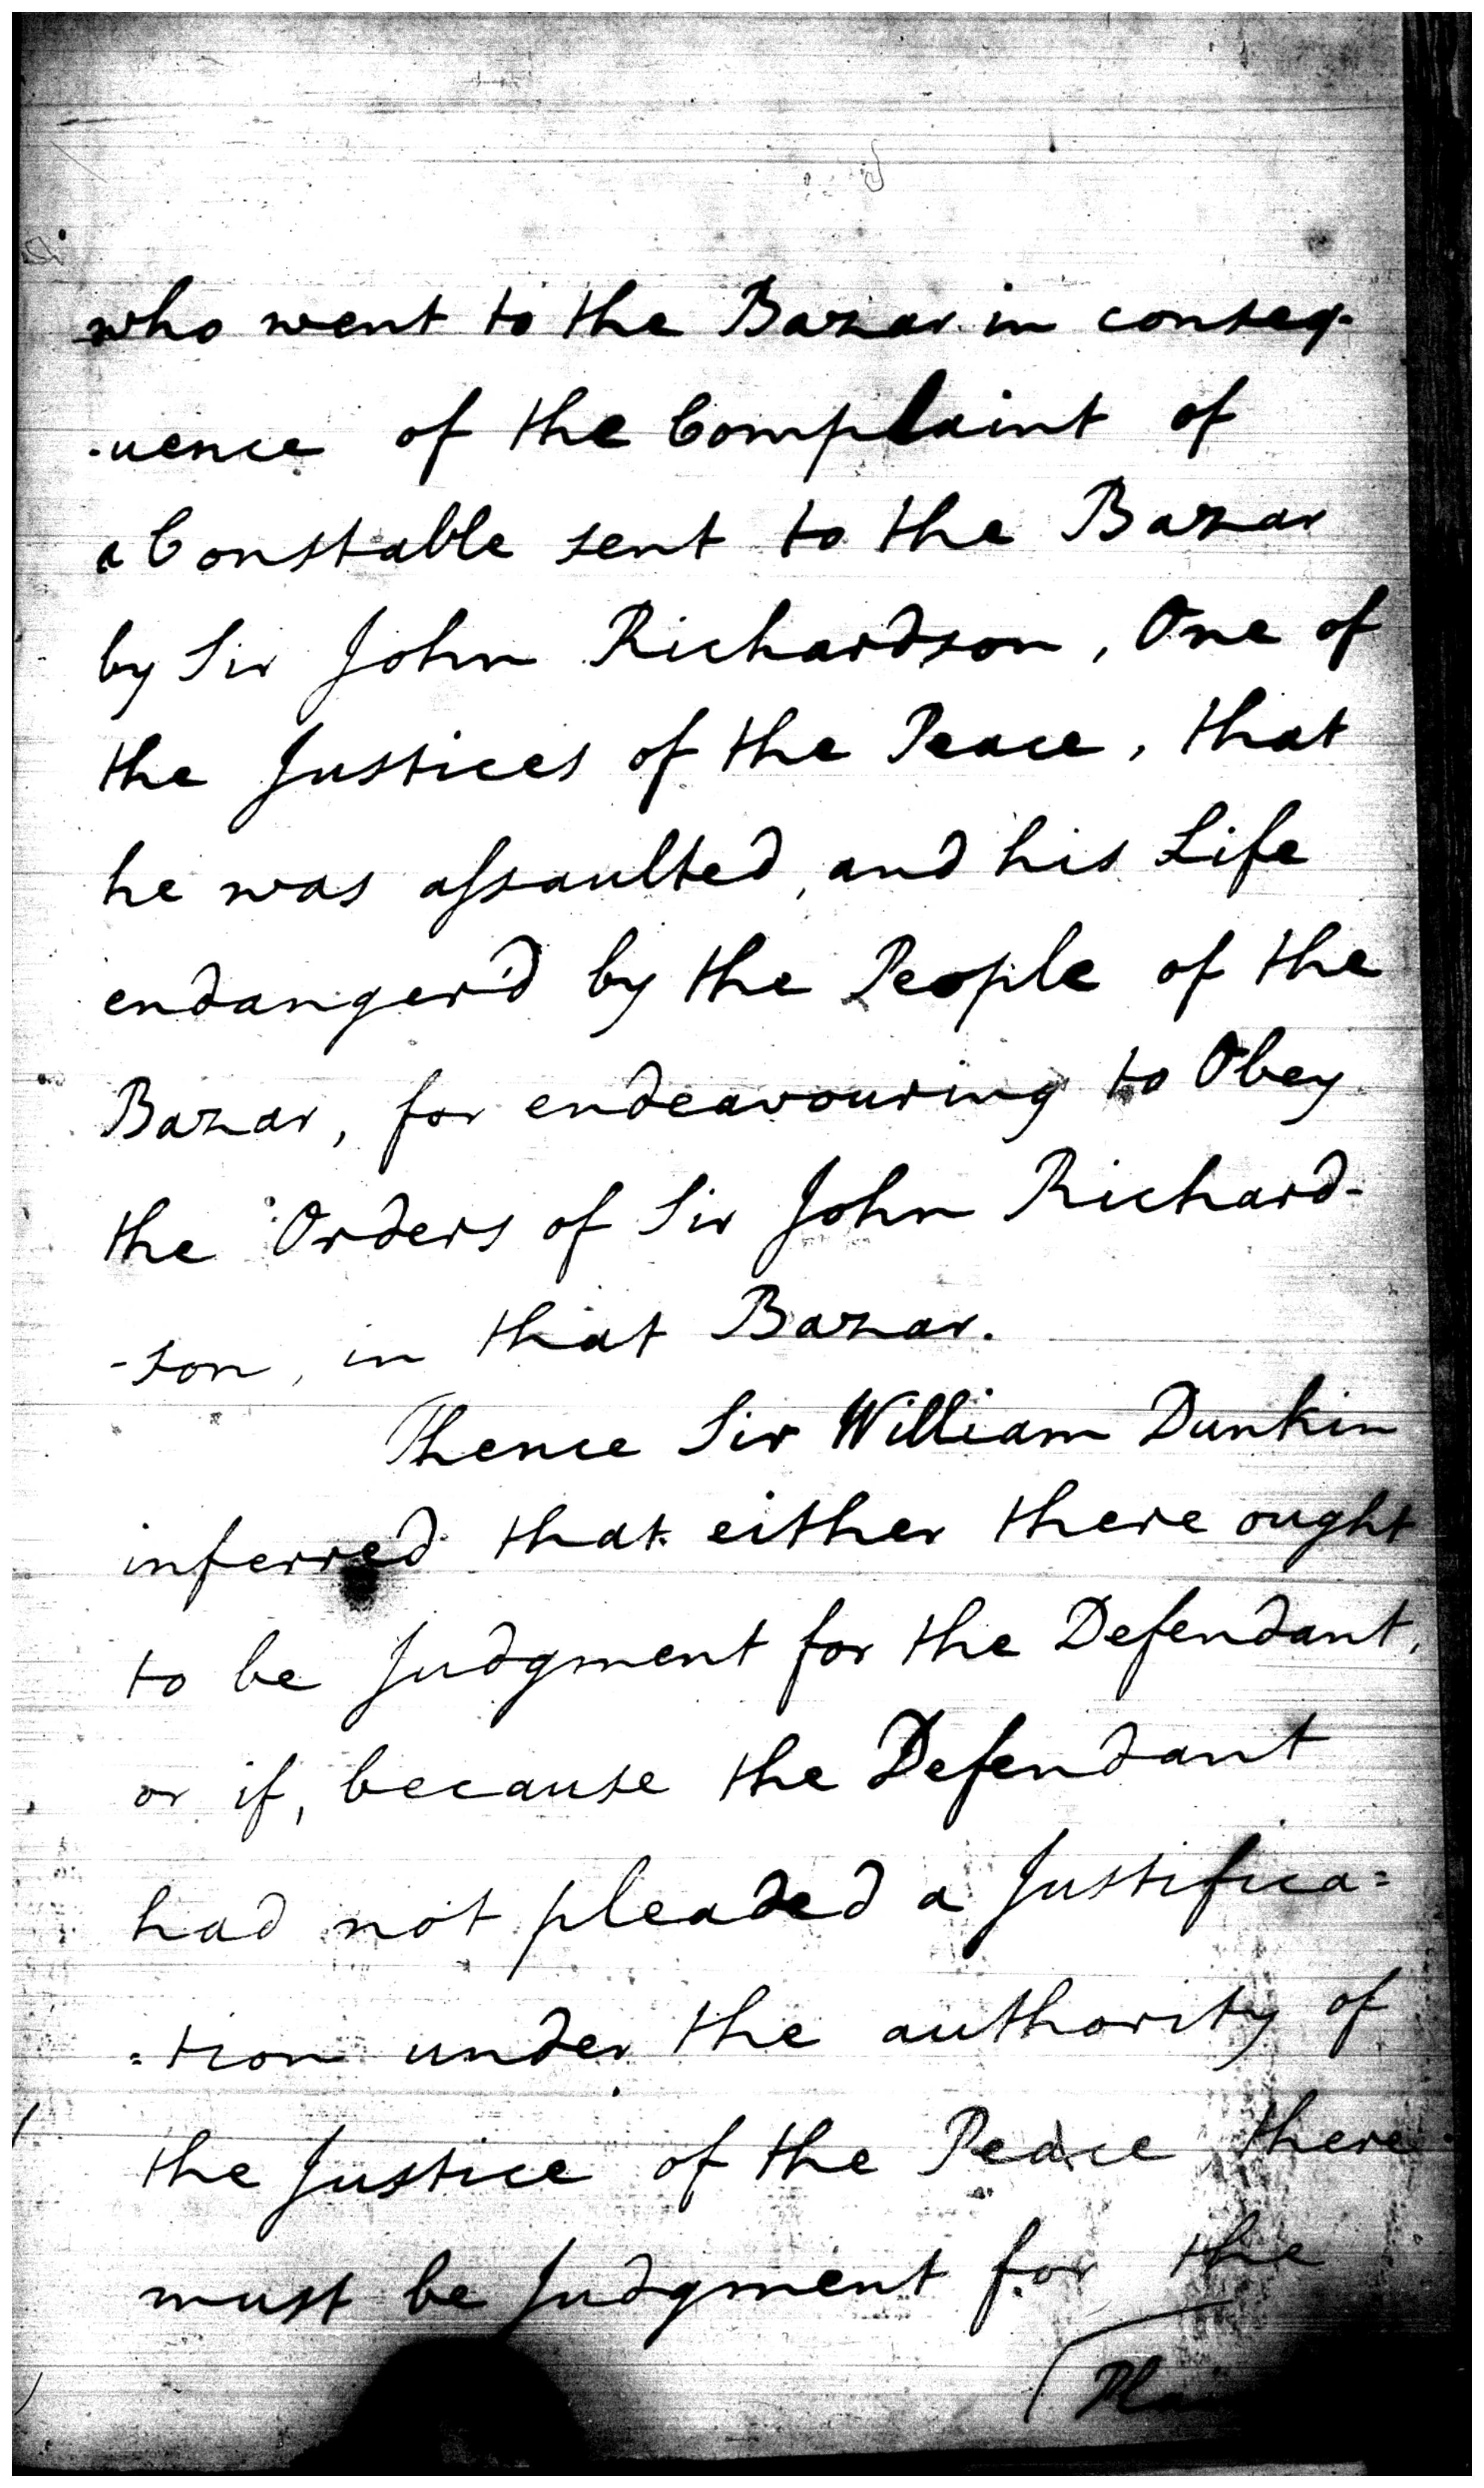 who went to the Bazar in conseq-
-uence of the Complaint of
a Constable sent to the Bazar
by Sir John Richardson, One of
the Justices of the Peace, that
he was assaulted, and his Life
endanger'd by the People of the
Bazar, for endeavouring to Obey
the Orders of Sir John Richard-
-son, in that Bazar.
Thence Sir William Dunkin
inferred that either there ought
to be Judgment for the Defendant,
or if, because the Defendant
had not pleaded a Justifica=
=tion under the authority of
the Justice of the Peace, there
must be Judgment for the